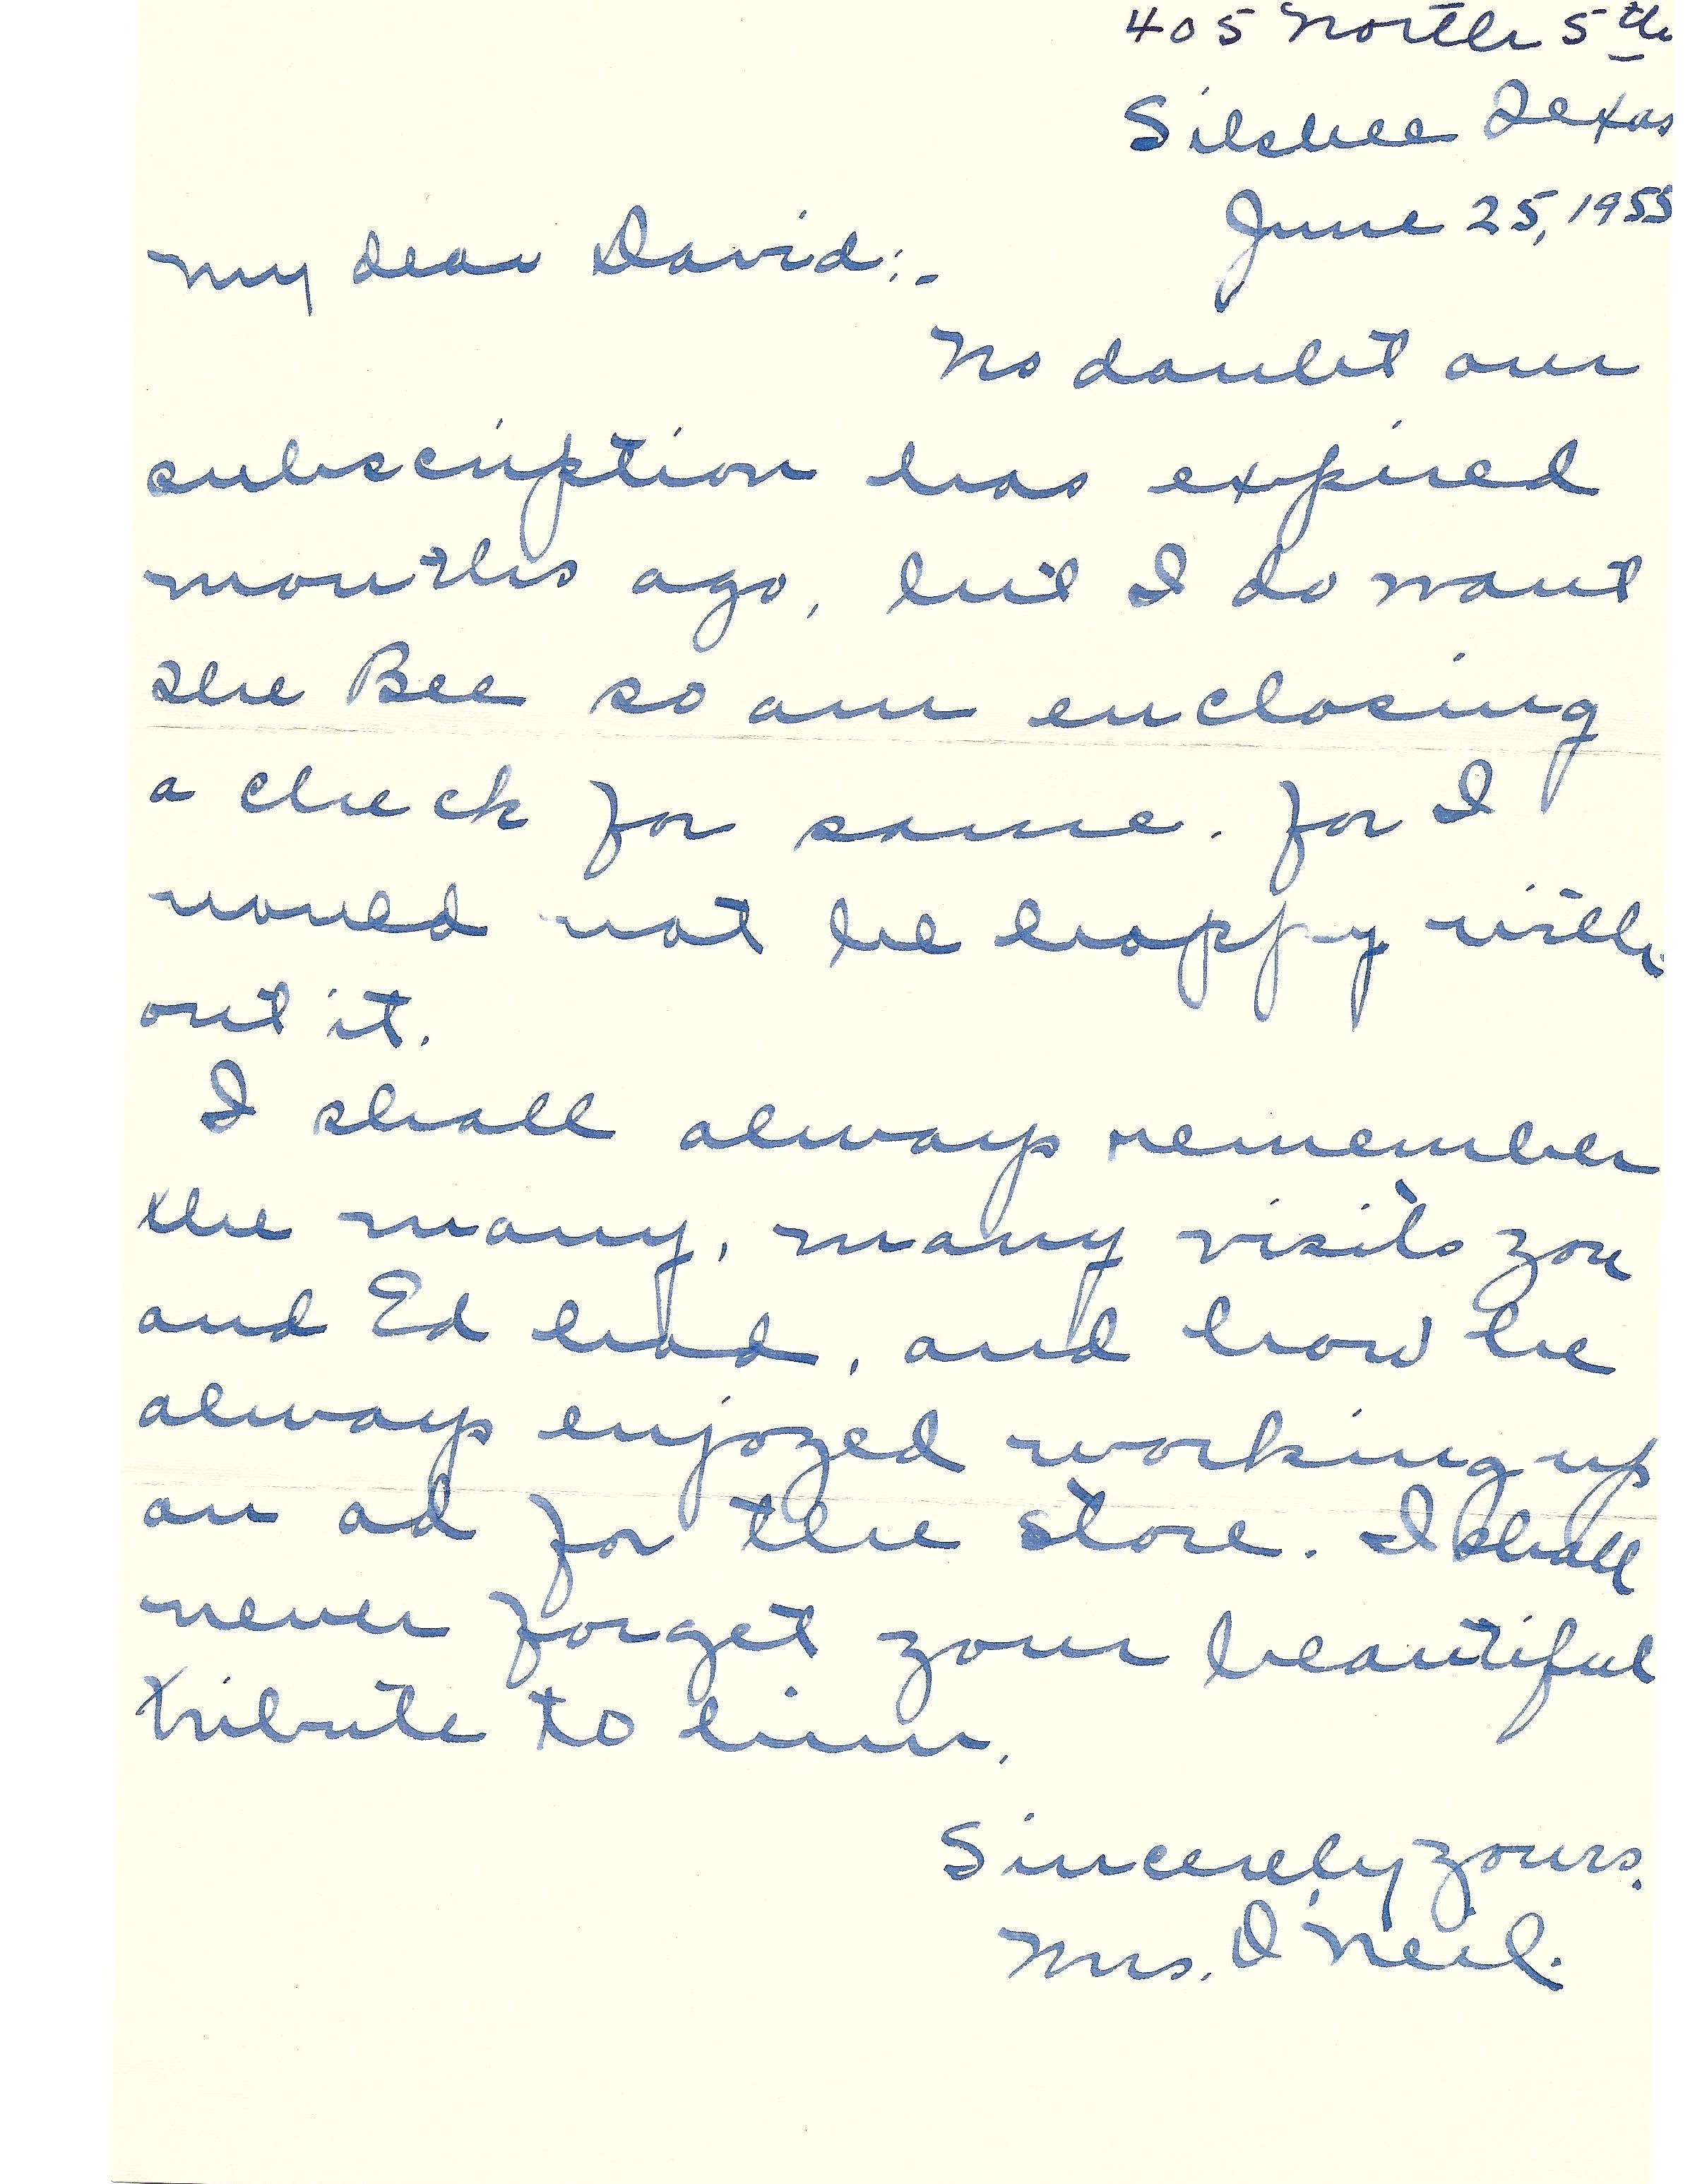 405 North 5th
Silsbee Texas
June 25, 1955
My dear David:-
No doubt our
subscription has expired
months ago, but I do want
the Bee so am enclosing
a check for same. for I
would not be happy with
out it.
I shall always remember
the many, many visits you
and Ed had, and how he
always enjoyed working up
an ad for the store. I shall
never forget your beautiful
tribute to him.
Sincerely yours.
Mrs. O'Neil.